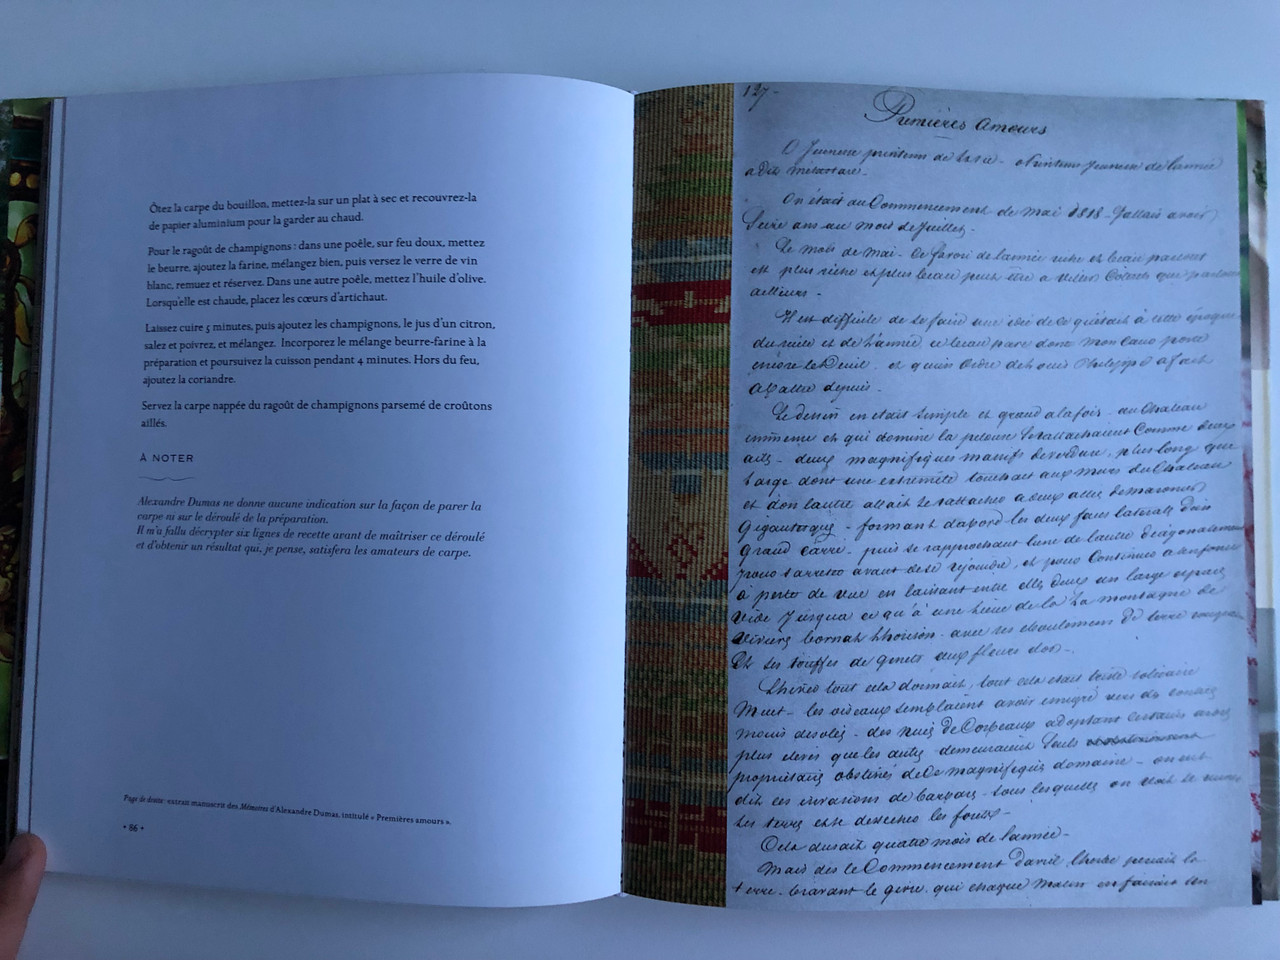 Ôtez la carpe du bouillon, mettez-la sur un plat à sec et recouvrez-la
de papier aluminium pour la garder au chaud.
Pour le ragoût de champignons : dans une poêle, sur feu doux, mettez
le beurre, ajoutez la farine, mélangez bien, puis versez le verre de vin
blanc, remuez et réservez. Dans une autre poêle, mettez l'huile d'olive.
Lorsqu'elle est chaude, placez les cœurs d'artichaut.
Laissez cuire 5 minutes, puis ajoutez les champignons, le jus d'un citron,
salez et poivrez, et mélangez. Incorporez le mélange beurre-farine à la
préparation et poursuivez la cuisson pendant 4 minutes. Hors du feu,
ajoutez la coriandre.
Servez la carpe nappée du ragoût de champignons parsemé de croûtons
aillés.
À NOTER
Alexandre Dumas ne donne aucune indication sur la façon de parer la
carpe ni sur le déroulé de la préparation.
Il m'a fallu décrypter six lignes de recette avant de maîtriser ce déroulé
et d'obtenir un résultat qui, je pense, satisfera les amateurs de carpe.
Page de droite : extrait manuscrit des Mémoires d'Alexandre Dumas, intitulé « Premières amours ».
• 86 •
127-
Premières amours
O Jeunesse printems de la vie - o Printems Jeunesse de l'année
a dit métastase -
On était au Commencement de mai 1818 - J'allais avoir
Seize ans au mois de Juillet -
Le mois de mai - Ce favori de l'année riche et beau partout
est plus riche et plus beau peut être a villers Coterets que partout
ailleurs -
Il est difficile de se faire une idée de ce qu'était à cette époque
encore le Deuil - et qu'un ordre de Louis Philippe a fait
abattre depuis -
Le dessin en était simple et grand a la fois - au Chateau
immense et qui domine la pelouse Se rattachaient Comme deux
ailes - deux magnifiques massifs de verdure, plus long que
large dont une extrémité touchait aux murs du Chateau
et dont l'autre allait se rattacher a deux allées de maroniers
Gigantesques - formant d'abord les deux faces latérales d'un
grand carré - puis se rapprochant l'une de l'autre diagonalement
pour s'arreter avant de se rejoindre, et pour Continuer a s'enfoncer
à perte de vue en laissant entre elles deux un large espace
vide Jusqua ce qu'à une lieue de la La montagne de
Viviers bornat l'horison - avec ses éboulements de terre rougeatre
Et ses touffes de Genets aux fleurs d'or -
L'hiver tout cela dormait, tout cela était triste solitaire
Muet - les oiseaux semblaient avoir émigré vers des contrées
moins desolés - des nuées de Corbeaux adoptant certains arbres
plus eleves que les autres demeuraient seuls
propriétaires obstinés de ce magnifique domaine - on eut
dit ces invasions de barbares - sous lesquelles on
les terres et se dessecher les forets -
Cela durait quatre mois de l'année -
Mais des le Commencement d'avril, l'herbe perçait la
terre - bravant le givre qui chaque matin en faisait un